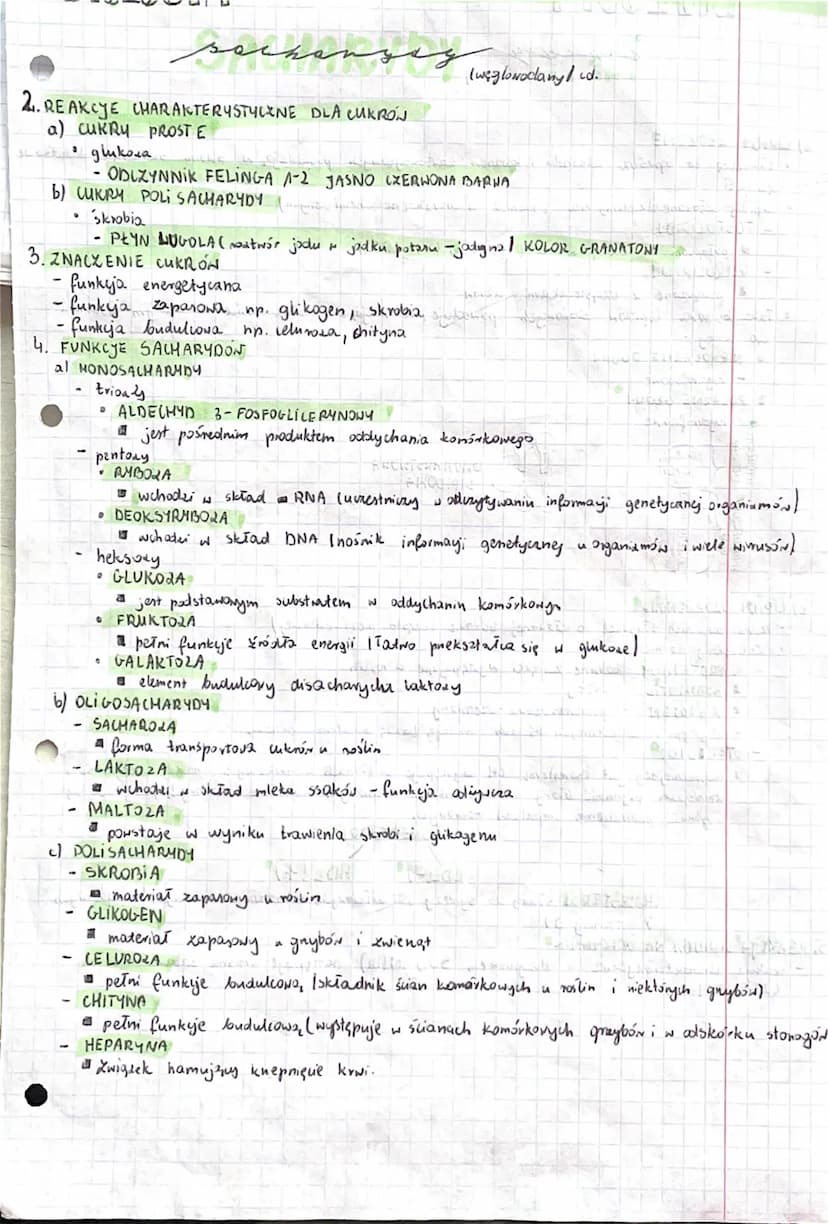 sacharydy
SACHARYDY
(węglowodany) cd.
2. REAKCJE CHARAKTERYSTYCZNE DLA CUKRÓW
a) CUKRY PROSTE
• glukoza
- ODCZYNNIK FELINGA 1-2 JASNO CZERWONA BARWA
b) CUKRY POLISACHARYDY
• skrobia
- PŁYN LUGOLA (roztwór jodu w jodku potasu - jodyna) KOLOR GRANATOWY
3. ZNACZENIE CUKRÓW
- funkcja energetyczna
- funkcja zapasowa np. glikogen, skrobia
- funkcja budulcowa np. celuroza, chityna
4. FUNKCJE SACHARYDÓW
a) MONOSACHARYDY
- triozy
• ALDEHYD 3-FOSFOGLICERYNOWY
jest pośrednim produktem oddychania komórkowego
- pentozy
• RYBOZA
wchodzi w skład RNA (uczestniczy w odczytywaniu informacji genetycznej organizmów)
• DEOKSYRYBOZA
wchodzi w skład DNA (nośnik informacji genetycznej u organizmów i wiele wirusów)
- heksozy
• GLUKOZA
jest podstawowym substratem w oddychaniu komórkowym
• FRUKTOZA
pełni funkcje źródła energii (łatwo przekształca się w glukozę)
• GALAKTOZA
element budulcowy disacharydu laktozy
b) OLIGOSACHARYDY
- SACHAROZA
forma transportowa cukrów u roślin
- LAKTOZA
wchodzi w skład mleka ssaków - funkcja odżywcza
- MALTOZA
powstaje w wyniku trawienia skrobi i glikogenu
c) POLISACHARYDY
- SKROBIA
materiał zapasowy u roślin
- GLIKOGEN
materiał zapasowy u grzybów i zwierząt
- CELUROZA
pełni funkcje budulcową (składnik ścian komórkowych u roślin i niektórych grzybów)
- CHITYNA
pełni funkcje budulcową (występuje w ścianach komórkowych grzybów i w oskórku stawonogów
- HEPARYNA
związek hamujący krzepnięcie krwi.